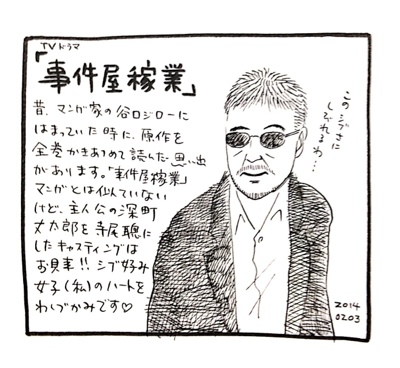 TVドラマ
「事件屋稼業」
昔、マンガ家の谷口ジローに
はまっていた時に、原作を
全巻かきあつめて読んだ思い出
があります。「事件屋稼業」
マンガとは似ていない
けど、主人公の深町
丈太郎を寺尾聰に
したキャスティングは
お見事!!シブ好み
女子(私)のハートを
わしづかみです♡
このシブさに
しびれるわ…
2014
0203